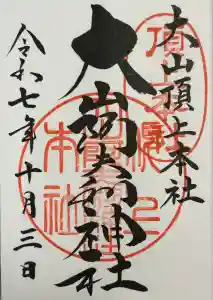 大山頂上本社
大山阿夫利神社
令和七年十月三日
本社